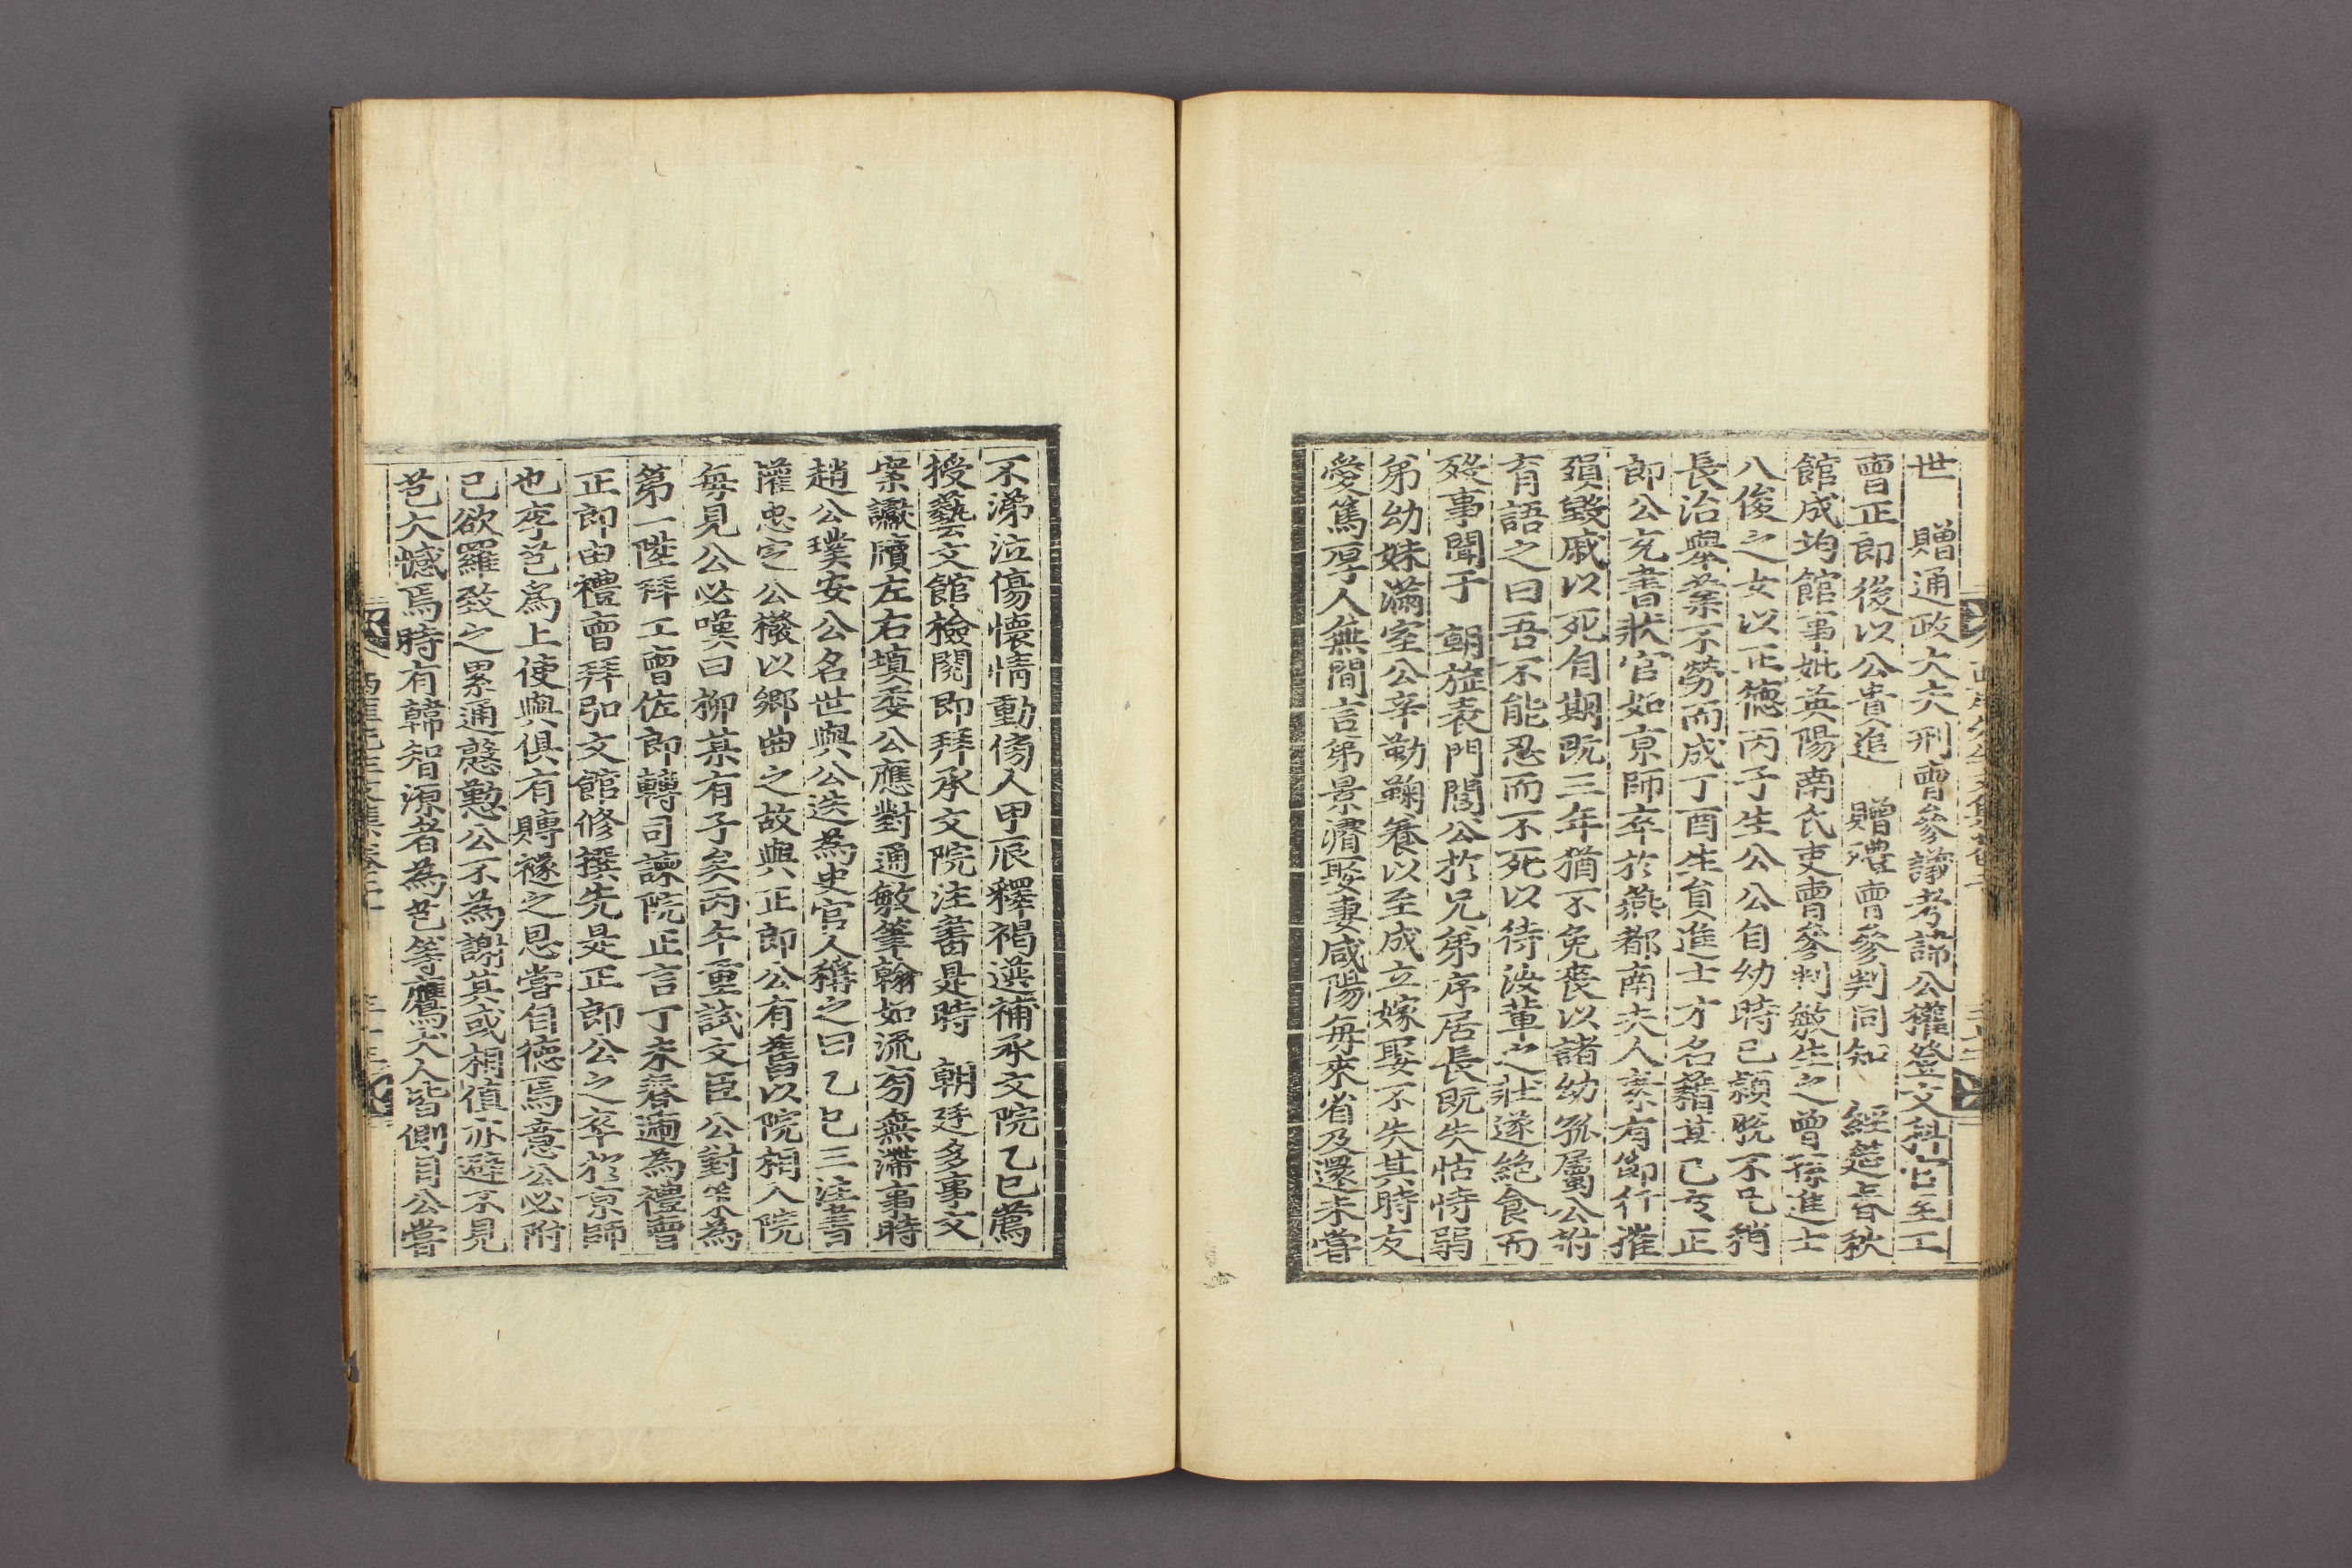 世　贈通政大夫刑曹參議考諱公權登文科官至工
曹正郞後以公貴追　贈禮曹參判同知　經筵春秋
館成均館事妣英陽南氏吏曹參判敏生之曾孫進士
八俊之女以正德丙子生公公自幼時已穎脫不凡稍
長治擧業不勞而成丁酉生員進士才名藉甚己亥正
郞公充書狀官如京師卒於燕都南夫人素有節行摧
殞毀戚以死自期旣三年猶不免喪以諸幼孤屬公訣
有語之曰吾不能忍而不死以待汝輩之壯遂絶食而
歿事聞于　朝旌表門閭公於兄弟序居長旣失怙恃弱
弟幼妹滿室公辛勤鞠養以至成立嫁娶不失其時友
愛篤厚人無間言弟景濬娶妻咸陽每來省及還未嘗
不涕泣傷懷情動傍人甲辰釋褐選補承文院乙巳薦
授藝文館檢閱卽拜承文院注書是時　朝廷多事文
案讞牘左右塡委公應對通敏筆翰如流旁無滯事時
趙公璞安公名世與公迭爲史官人稱之曰乙巳三注書
權忠定公橃以鄕曲之故與正郞公有舊以院相入院
每見公必嘆曰柳某有子矣丙午重試文臣公對策爲
第一陞拜工曹佐郞轉司諫院正言丁未春遞爲禮曹
正郞由禮曹拜弘文館修撰先是正郞公之卒於京師
也李芑爲上使與俱有賻襚之恩嘗自德焉意公必附
己欲羅致之累通慇懃公不爲謝其或相値亦避不見
芑大憾焉時有韓智源者爲芑等鷹犬人皆側目公嘗